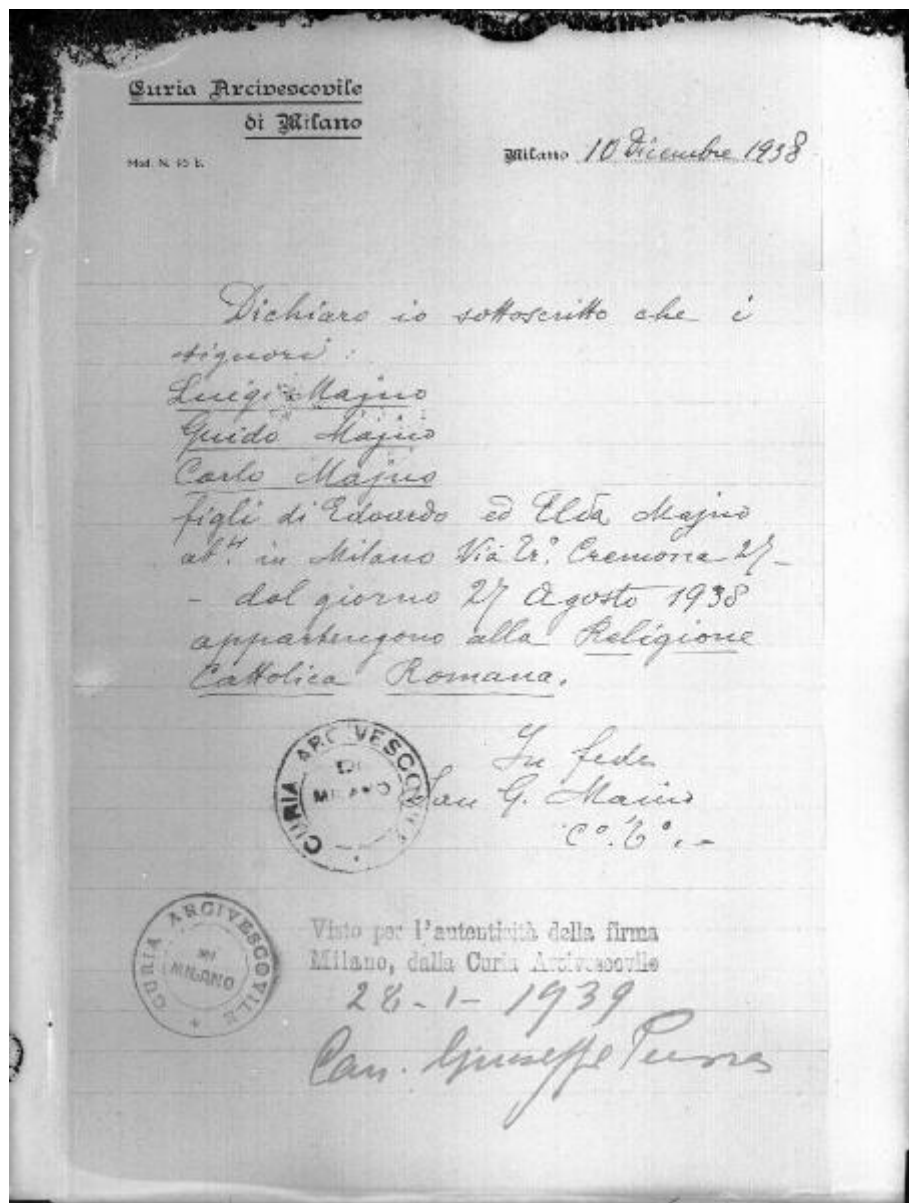 Curia Arcivescovile
di Milano
Mod. N. 95 b.
Milano 10 Dicembre 1938
Dichiaro io sottoscritto che i
signori:
Luigi Majno
Guido Majno
Carlo Majno
figli di Edoardo ed Elda Majno
ab.ti in Milano Via Tr. Cremona 27 -
- dal giorno 27 Agosto 1938
appartengono alla Religione
Cattolica Romana.
In fede
CURIA ARCIVESCOVILE
DI
MILANO
Can G.
Visto per l'autenticità della firma
Milano, dalla Curia Arcivescovile
CURIA ARCIVESCOVILE
DI
MILANO
28-1-1939
Can. Giuseppe